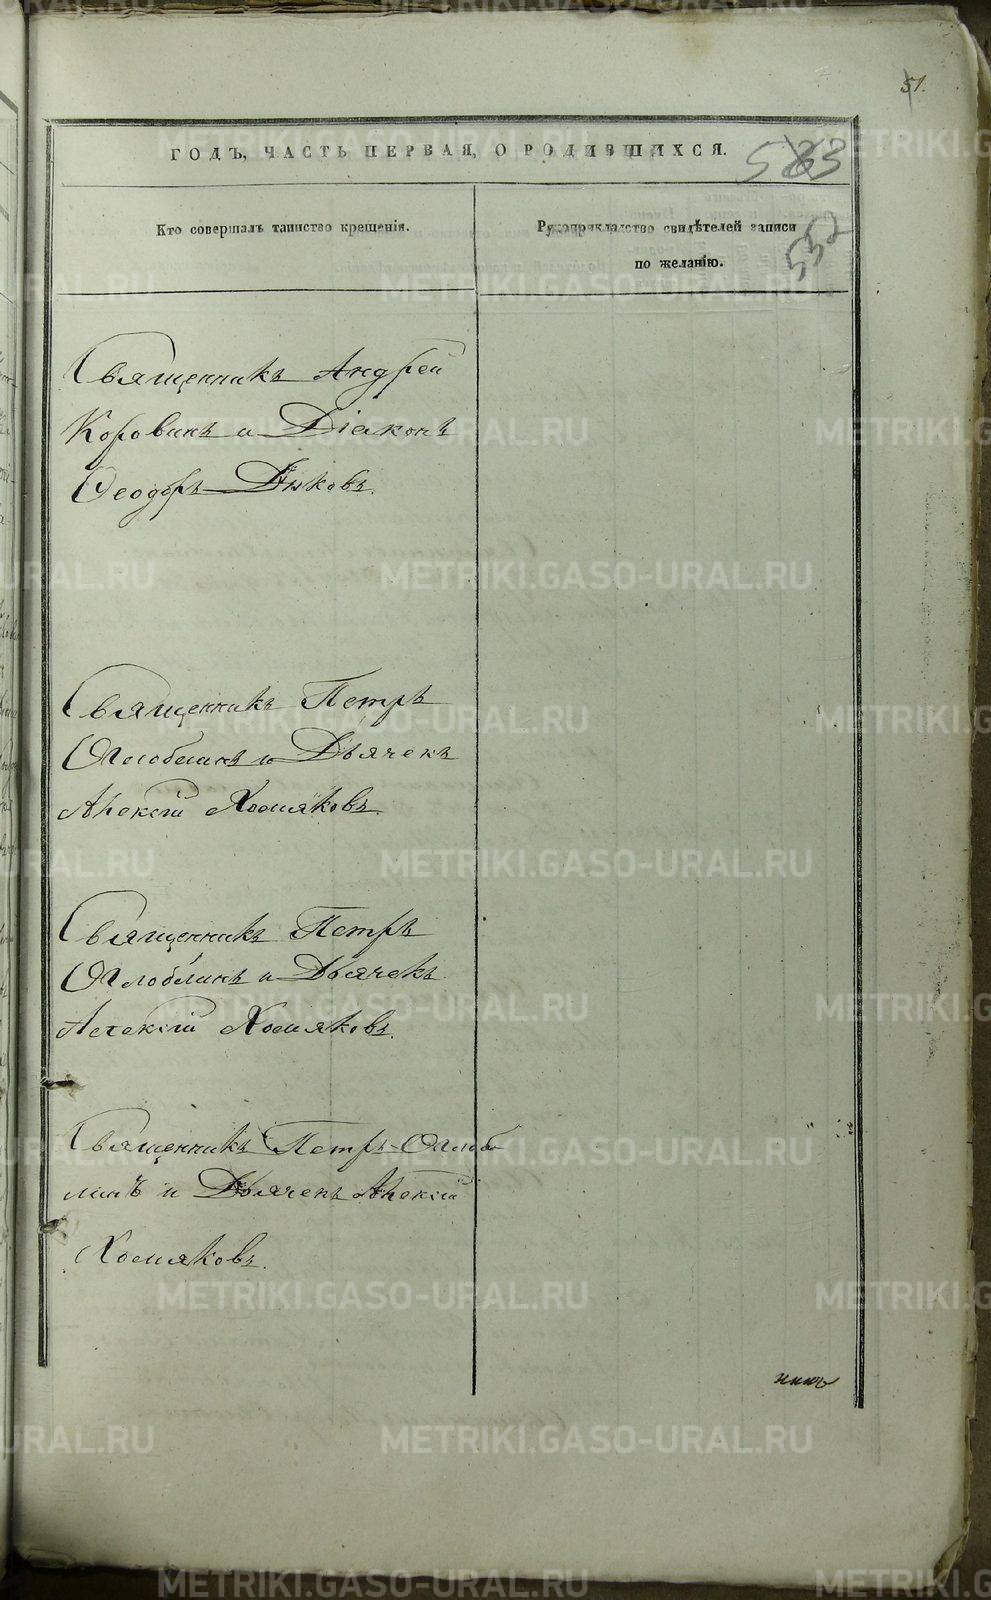 51.
ГОДЪ, ЧАСТЬ ПЕРВАЯ, О РОДИВШИХСЯ.
583
552
Кто совершалъ таинство крещенія.
Рукоприкладство свидѣтелей записи
по желанію.
Священникъ Андрей
Коровинъ и Діаконъ
Ѳеодоръ Дьяковъ.
Священникъ Петръ
Оглоблинъ и Дьячекъ
Алексій Хомяковъ.
Священникъ Петръ
Оглоблинъ и Дьячекъ
Алексій Хомяковъ.
Священникъ Петръ Оглоб
линъ и Дьячекъ Алексій
Хомяковъ.
METRIKI.GASO-URAL.RU